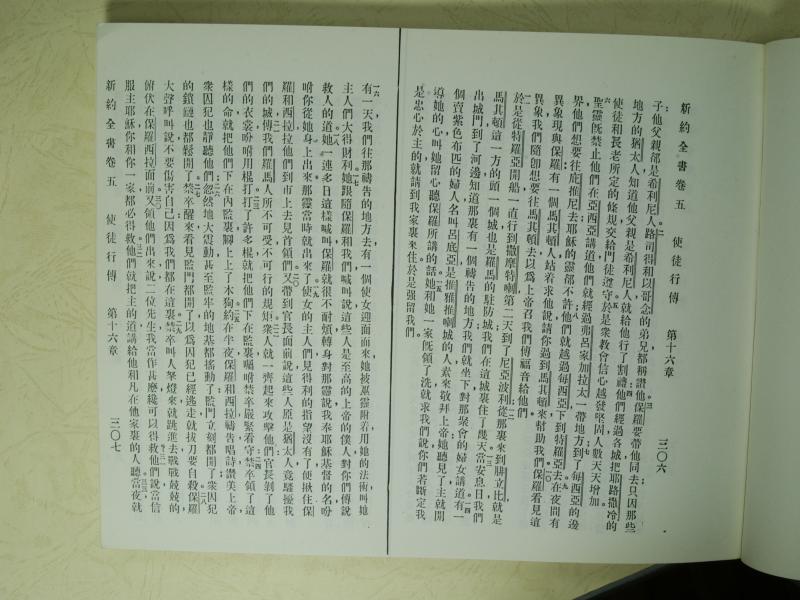 新約全書卷五 使徒行傳 第十六章 三〇六
子他父親卻是希利尼人路司得和以哥念的弟兄都稱讚他保羅要帶他同去只因那些
地方的猶太人知道他父親是希利尼人就給他行了割禮他們經過各城把耶路撒冷的
使徒和長老所定的條規交給門徒遵守於是衆教會信心越發堅固人數天天增加
聖靈旣禁止他們在亞西亞講道他們就經過弗呂家加拉太一帶地方到了每西亞的邊
界他們想要往庇推尼去耶穌的靈卻不許他們就越過每西亞下到特羅亞去在夜間有
異象現與保羅有一個馬其頓人站着求他說請你過到馬其頓來幫助我們保羅看見這
異象我們隨卽想要往馬其頓去以爲上帝召我們傳福音給他們
於是從特羅亞開船一直行到撒摩特喇第二天到了尼亞波利從那裏來到腓立比就是
馬其頓這一方的頭一個城也是羅馬的駐防城我們在這城裏住了幾天當安息日我們
出城門到了河邊知道那裏有一個禱告的地方我們就坐下對那聚會的婦女講道有一
個賣紫色布匹的婦人名叫呂底亞是推雅推喇城的人素來敬拜上帝她聽見了主就開
導她的心叫她留心聽保羅所講的話她和她一家旣領了洗就求我們說你們若斷定我
是忠心於主的就請到我家裏來住於是强留我們
有一天我們往那禱告的地方去有一個使女迎面而來她被巫靈附着用她的法術叫她
主人們大得財利她跟隨保羅和我們喊叫說這些人是至高的上帝的僕人對你們傳說
救人的道她一連多日這樣喊叫保羅就很不耐煩轉身對那靈說我奉耶穌基督的名吩
咐你從她身上出來那靈當時就出來了使女的主人們見得利的指望沒有了便揪住保
羅和西拉拉他們到市上去見首領們又帶到官長面前說這些人原是猶太人竟騷擾我
們的城傳我們羅馬人所不可受不可行的規矩衆人就一齊起來攻擊他們官長剝了他
們的衣裳吩咐用棍打打了許多棍就把他們下在監裏囑咐禁卒嚴緊看守禁卒領了這
樣的命就把他們下在內監裏腳上上了木狗約在半夜保羅和西拉禱告唱詩讚美上帝
衆囚犯也靜聽他們忽然地大震動甚至監牢的地基都搖動了監門立刻都開了衆囚犯
的鎖鏈也都鬆開了禁卒醒來看見監門都開了以爲囚犯已經逃走就拔刀要自殺保羅
大聲呼叫說不要傷害自己因爲我們都在這裏禁卒叫人拏燈來就跳進去戰戰兢兢的
俯伏在保羅西拉面前又領他們出來說二位先生我當作甚麼纔可以得救他們說當信
服主耶穌你和你一家都必得救他們就把主的道講給他和凡在他家裏的人聽當夜就
新約全書卷五 使徒行傳 第十六章 三〇七